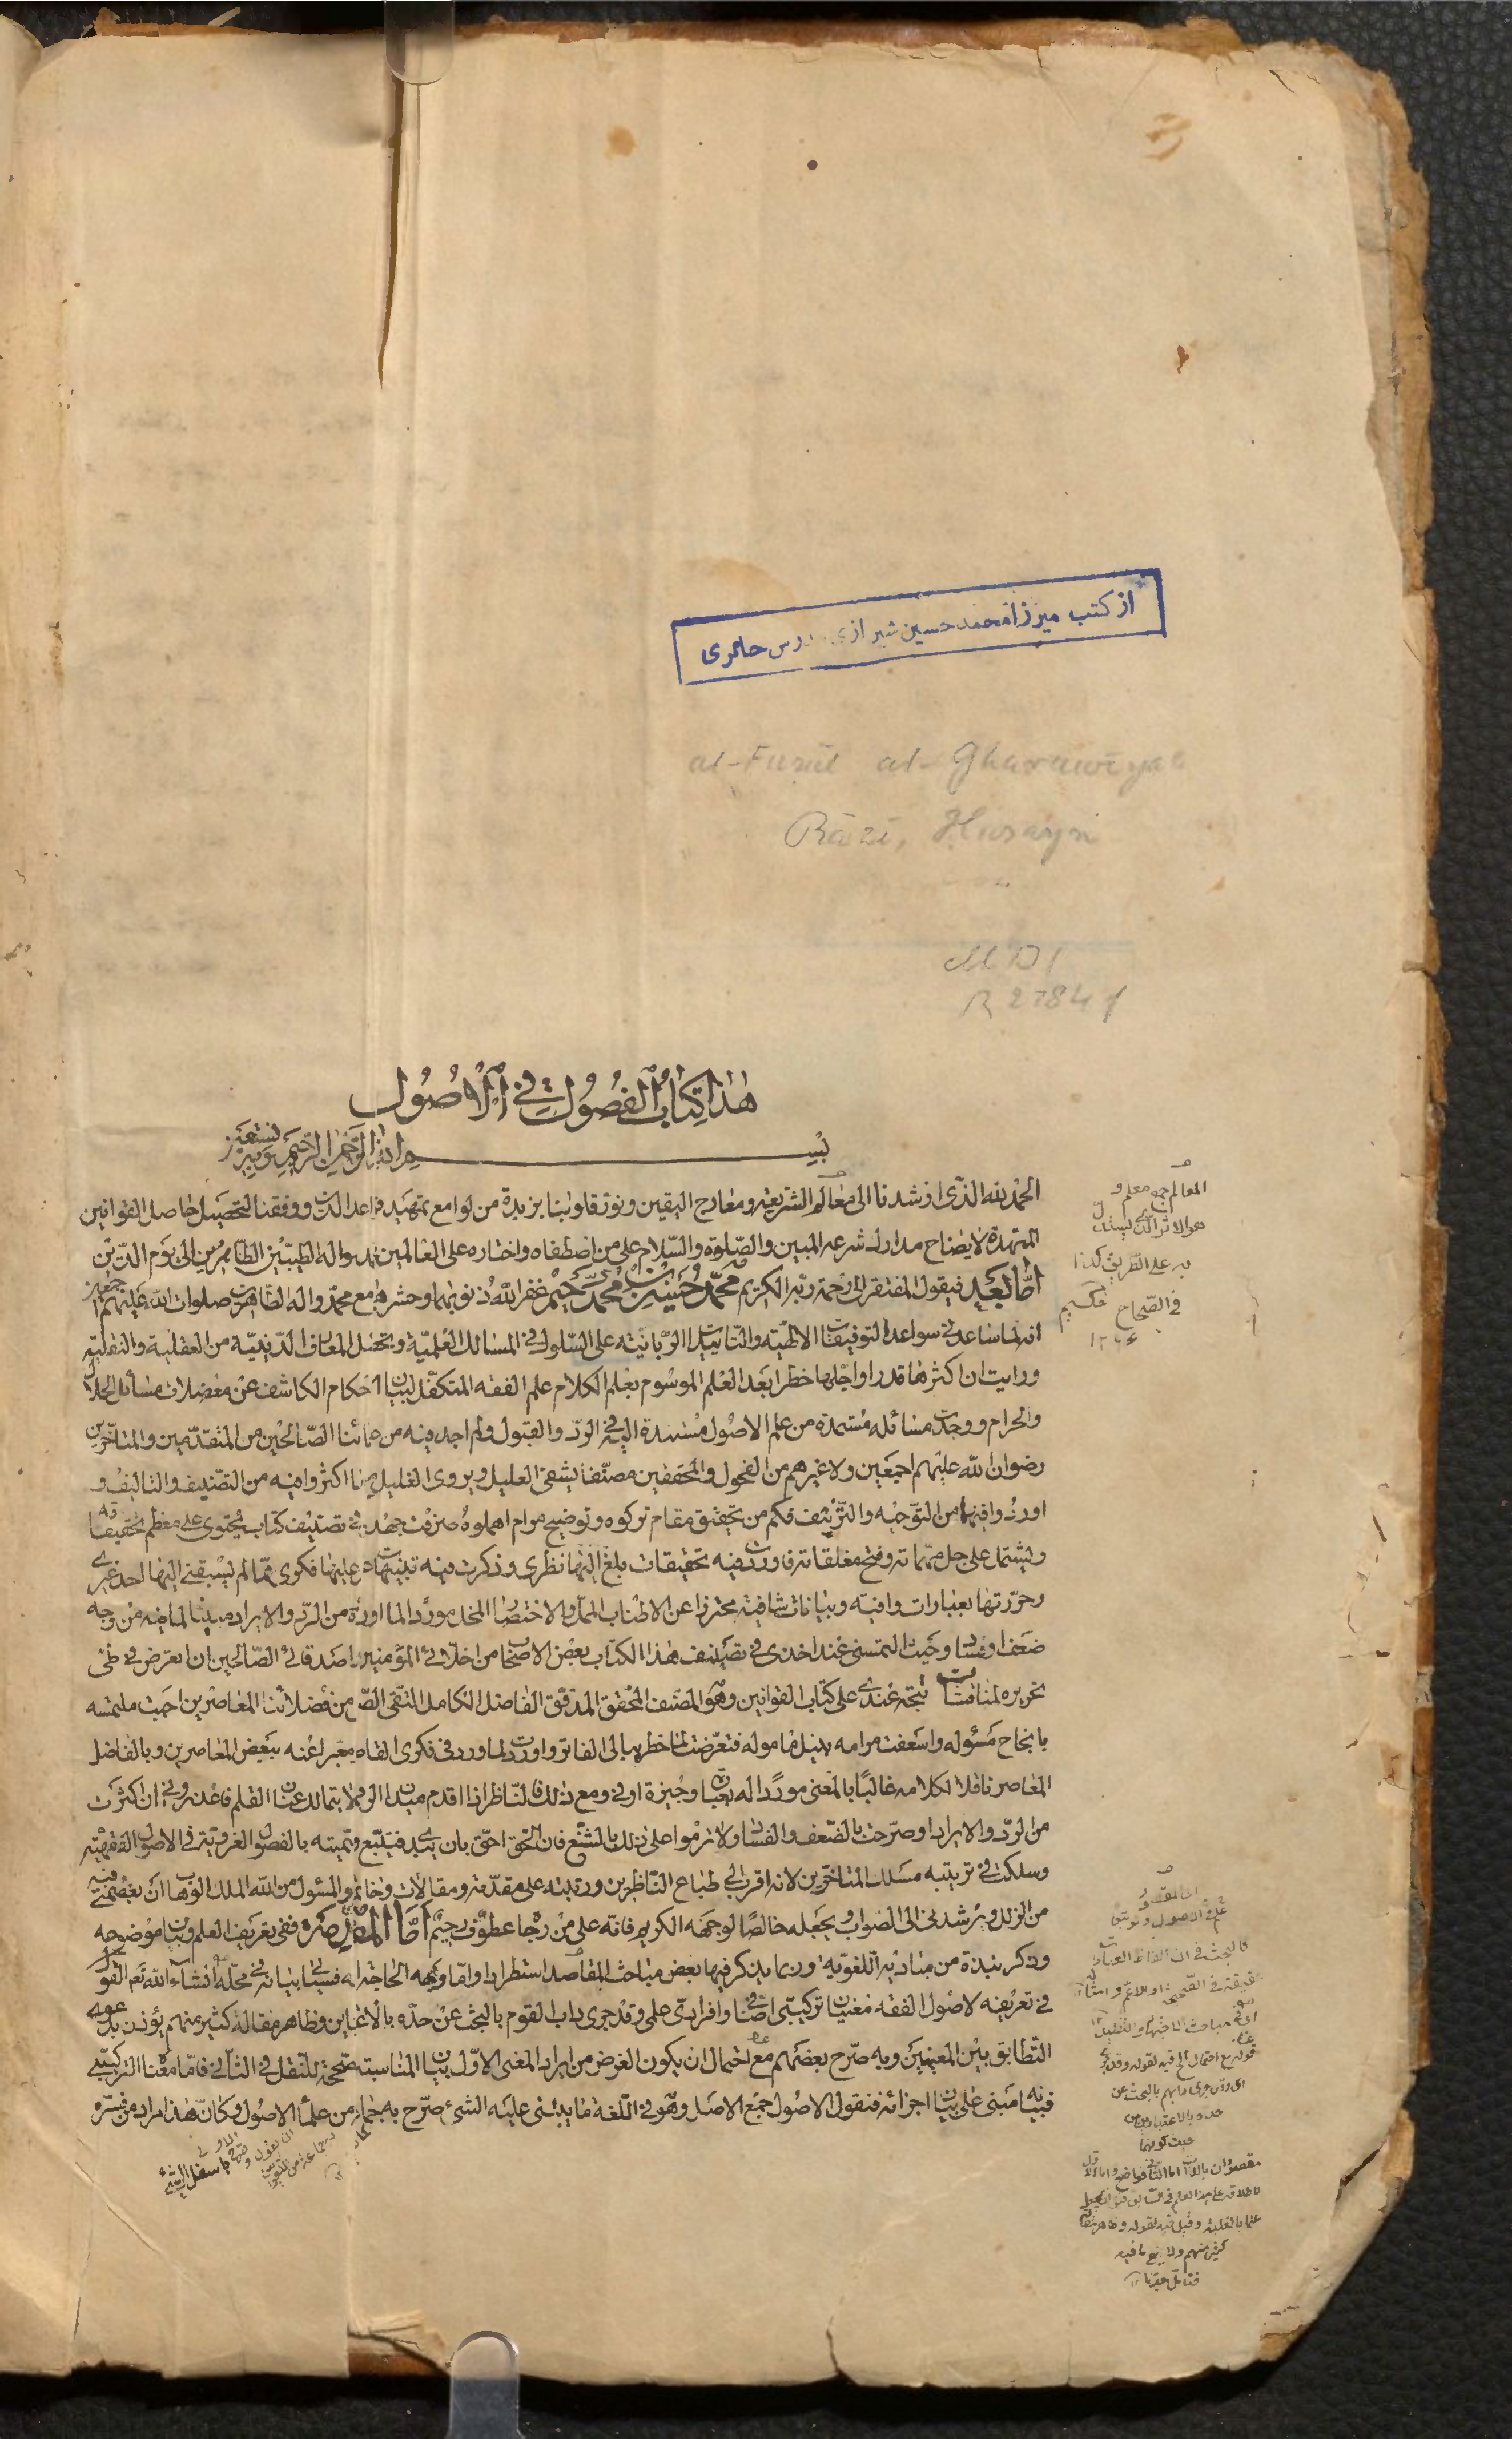 از کتب میرزا محمد حسین شیرازی مدرس حائری
al-Fuṣūl al-Gharawīyah
Rāzī, Ḥusayn
MDI
R 2784 f
هذا كتاب الفصول في الاصول
بسم الله الرحمن الرحيم وبه نستعين
الحمد لله الذى ارشدنا الى معالم الشريعة ومعارج اليقين ونور قلوبنا بزبدة من لوامع تمهيد قواعد الدين ووفقنا لتحصيل حاصل القوانين
الممهدة لايضاح مدارك شرعه المبين والصلوة والسلام على من اصطفاه واختاره على العالمين محمد واله الطيبين الطاهرين الى يوم الدين
اما بعد فيقول المفتقر الى رحمة ربه الكريم محمد حسين بن محمد رحيم غفر الله ذنوبهما وحشرهما مع محمد واله الطاهرين صلوات الله عليهم اجمعين
انه لما ساعدنى سواعد التوفيقات الالهية والتاييدات الربانية على السلوك فى المسالك العلمية وتحصيل المعارف الدينية من العقلية والنقلية
ورايت ان اكثرها قدرا واجلها خطرا بعد العلم الموسوم بعلم الكلام علم الفقه المتكفل لبيان الاحكام الكاشف عن معضلات مسائل الحلال
والحرام ووجدت مسائله مستمدة من علم الاصول مستندة اليه فى الرد والقبول ولم اجد فيه من علمائنا الصالحين من المتقدمين والمتاخرين
رضوان الله عليهم اجمعين ولا غيرهم من الفحول والمحققين مصنفا يشفى العليل ويروى الغليل مع ما اكثروا فيه من التصنيف والتاليف و
اوردوا فيها من التوجيه والتزييف فكم من تحقيق مقام تركوه وتوضيح مرام اهملوه صرفت جهدى فى تصنيف كتاب يحتوى على معظم تحقيقاته
ويشتمل على جل مهماته وفتح مغلقاته فاوردت فيه تحقيقات بلغ اليها نظرى وذكرت فيه تنبيهات عثر عليها فكرى مما لم يسبقنى اليها احد غيرى
وحررتها بعبارات وافية وبيانات شافية محترزا عن الاطناب الممل والاختصار المخل موردا لما اوردوه من الرد والايراد مبينا لما فيه من وجه
ضعف او فساد وحيث التمسنى عند اخذى فى تصنيف هذا الكتاب بعض الاصحاب من اخلائى المؤمنين واصدقائى الصالحين ان اتعرض فى طى
تحريره لمناقشات تتجه عندى على كتاب القوانين وهو المصنف المحقق المدقق الفاضل الكامل التقى الصفى من فضلائنا المعاصرين اجبت ملتمسه
بانجاح مسئوله واسعفت مرامه بنيل ماموله فتعرضت لما خطر ببالى الفاتر واوردت لما ورد فى فكرى القاصر معبرا عنه ببعض المعاصرين وبالفاضل
المعاصر ناقلا لكلامه غالبا بالمعنى موردا له بعبارة وجيزة اوفى ومع ذلك فالناظر اذا اقدم ميدان الوغى لا يتمالك عنان القلم فاعذرونى ان اكثرت
من الرد والايراد او صرحت بالضعف والفساد ولا ترموا على ذلك بالشنع فان الحق احق بان يبدى فيتبع وسميته بالفصول الغروية فى الاصول الفقهية
وسلكت فى ترتيبه مسلك المتاخرين لانه اقرب الى طباع الناظرين ورتبته على مقدمة ومقالات وخاتمة والمسئول من الله الملك الوهاب ان يعصمنى فيه
من الزلل ويرشدنى الى الصواب ويجعله خالصا لوجهه الكريم فانه على من رجاه عطوف رحيم اما المقدمة ففى تعريف العلم وبيان موضوعه
وذكر نبذة من مباديه اللغوية وربما يذكر فيها بعض مباحث المقاصد استطرادا واما وجه الحاجة اليه فسياتى بيانه فى محله انشاء الله نعم القول
فى تعريفه لاصول الفقه معنيان تركيبى اضافى وافرادى علمى وقد جرى داب القوم بالبحث عن حده بالاعتبارين وظاهر مقالة كثير منهم يؤذن بدعوى
التطابق بين المعنيين وبه صرح بعضهم مع احتمال ان يكون الغرض من ايراد المعنى الاول بيان المناسبة المصححة للنقل فى الثانى فاما معناه التركيبى
فبيانه مبنى على بيان اجزائه فنقول الاصول جمع الاصل وهو فى اللغة ما يبتنى عليه الشىء صرح به جماعة من علماء الاصول وكان هذا مراد من فسره
باسفل الشىء
المعالم جمع معلم و
هو الاثر الذى يستدل
به على الطريق كذا
فى الصحاح
حكيم
قوله مع احتمال الخ فيه لقوله وقد جرى
حده بالاعتبارين من
حيث كونهما
علما بالغلبة وقيل فيه لقوله وظاهر مقالة
كثير منهم ولا يخفى ما فيه
فتامل جيدا